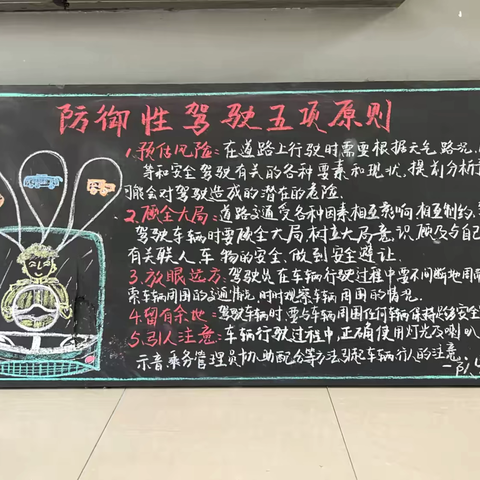 防御性驾驶五项原则
1.预估风险:在道路上行驶时需要根据天气.路况.
等和安全驾驶有关的各种要素和现状,提前分析
可能会对驾驶造成的潜在的危险.
2.顾全大局:道路交通受各种因素相互影响相互制约.
驾驶车辆时要顾全大局.树立大局意识.顾及与自己
有关联人.车.物的安全.做到安全避让.
3.放眼远方.驾驶员在车辆行驶过程中要不间断地用
车辆周围的交通情况.时时观察车辆周围的情况.
4.留有余地:驾驶车辆时.要与车辆周围任何车辆保持
安全
5.引人注意:车辆行驶过程中.正确使用灯光及喇叭
示音.乘务管理员协助配合等方法引起车辆行人的注意.
一队